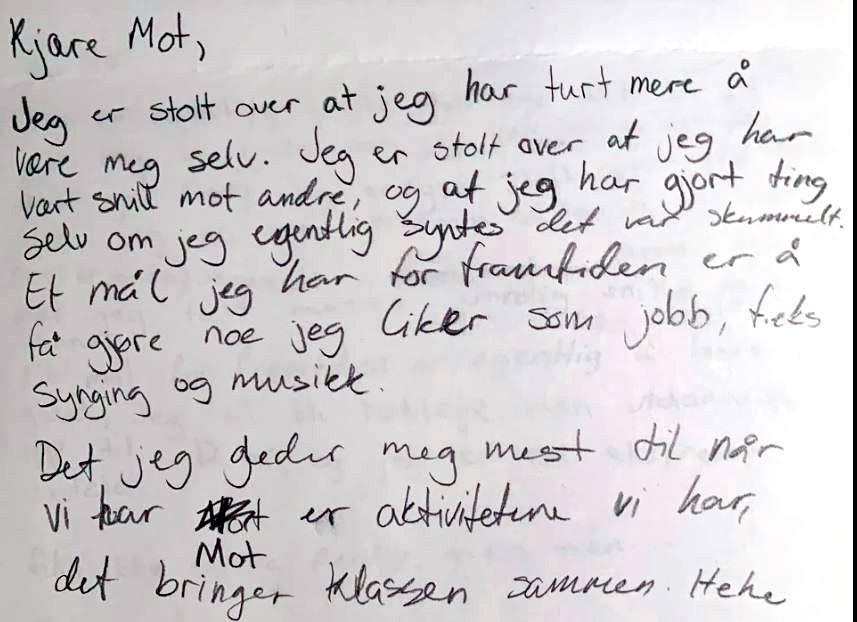 Kjære Mot,
Jeg er stolt over at jeg har turt mere å
være meg selv. Jeg er stolt over at jeg har
vært snill mot andre, og at jeg har gjort ting
selv om jeg egentlig syntes det var skummelt.
Et mål jeg har for framtiden er å
få gjøre noe jeg liker som jobb, f.eks
synging og musikk.
Det jeg gleder meg mest til når
vi har er aktivitetene vi har,
Mot
det bringer klassen sammen. Hehe